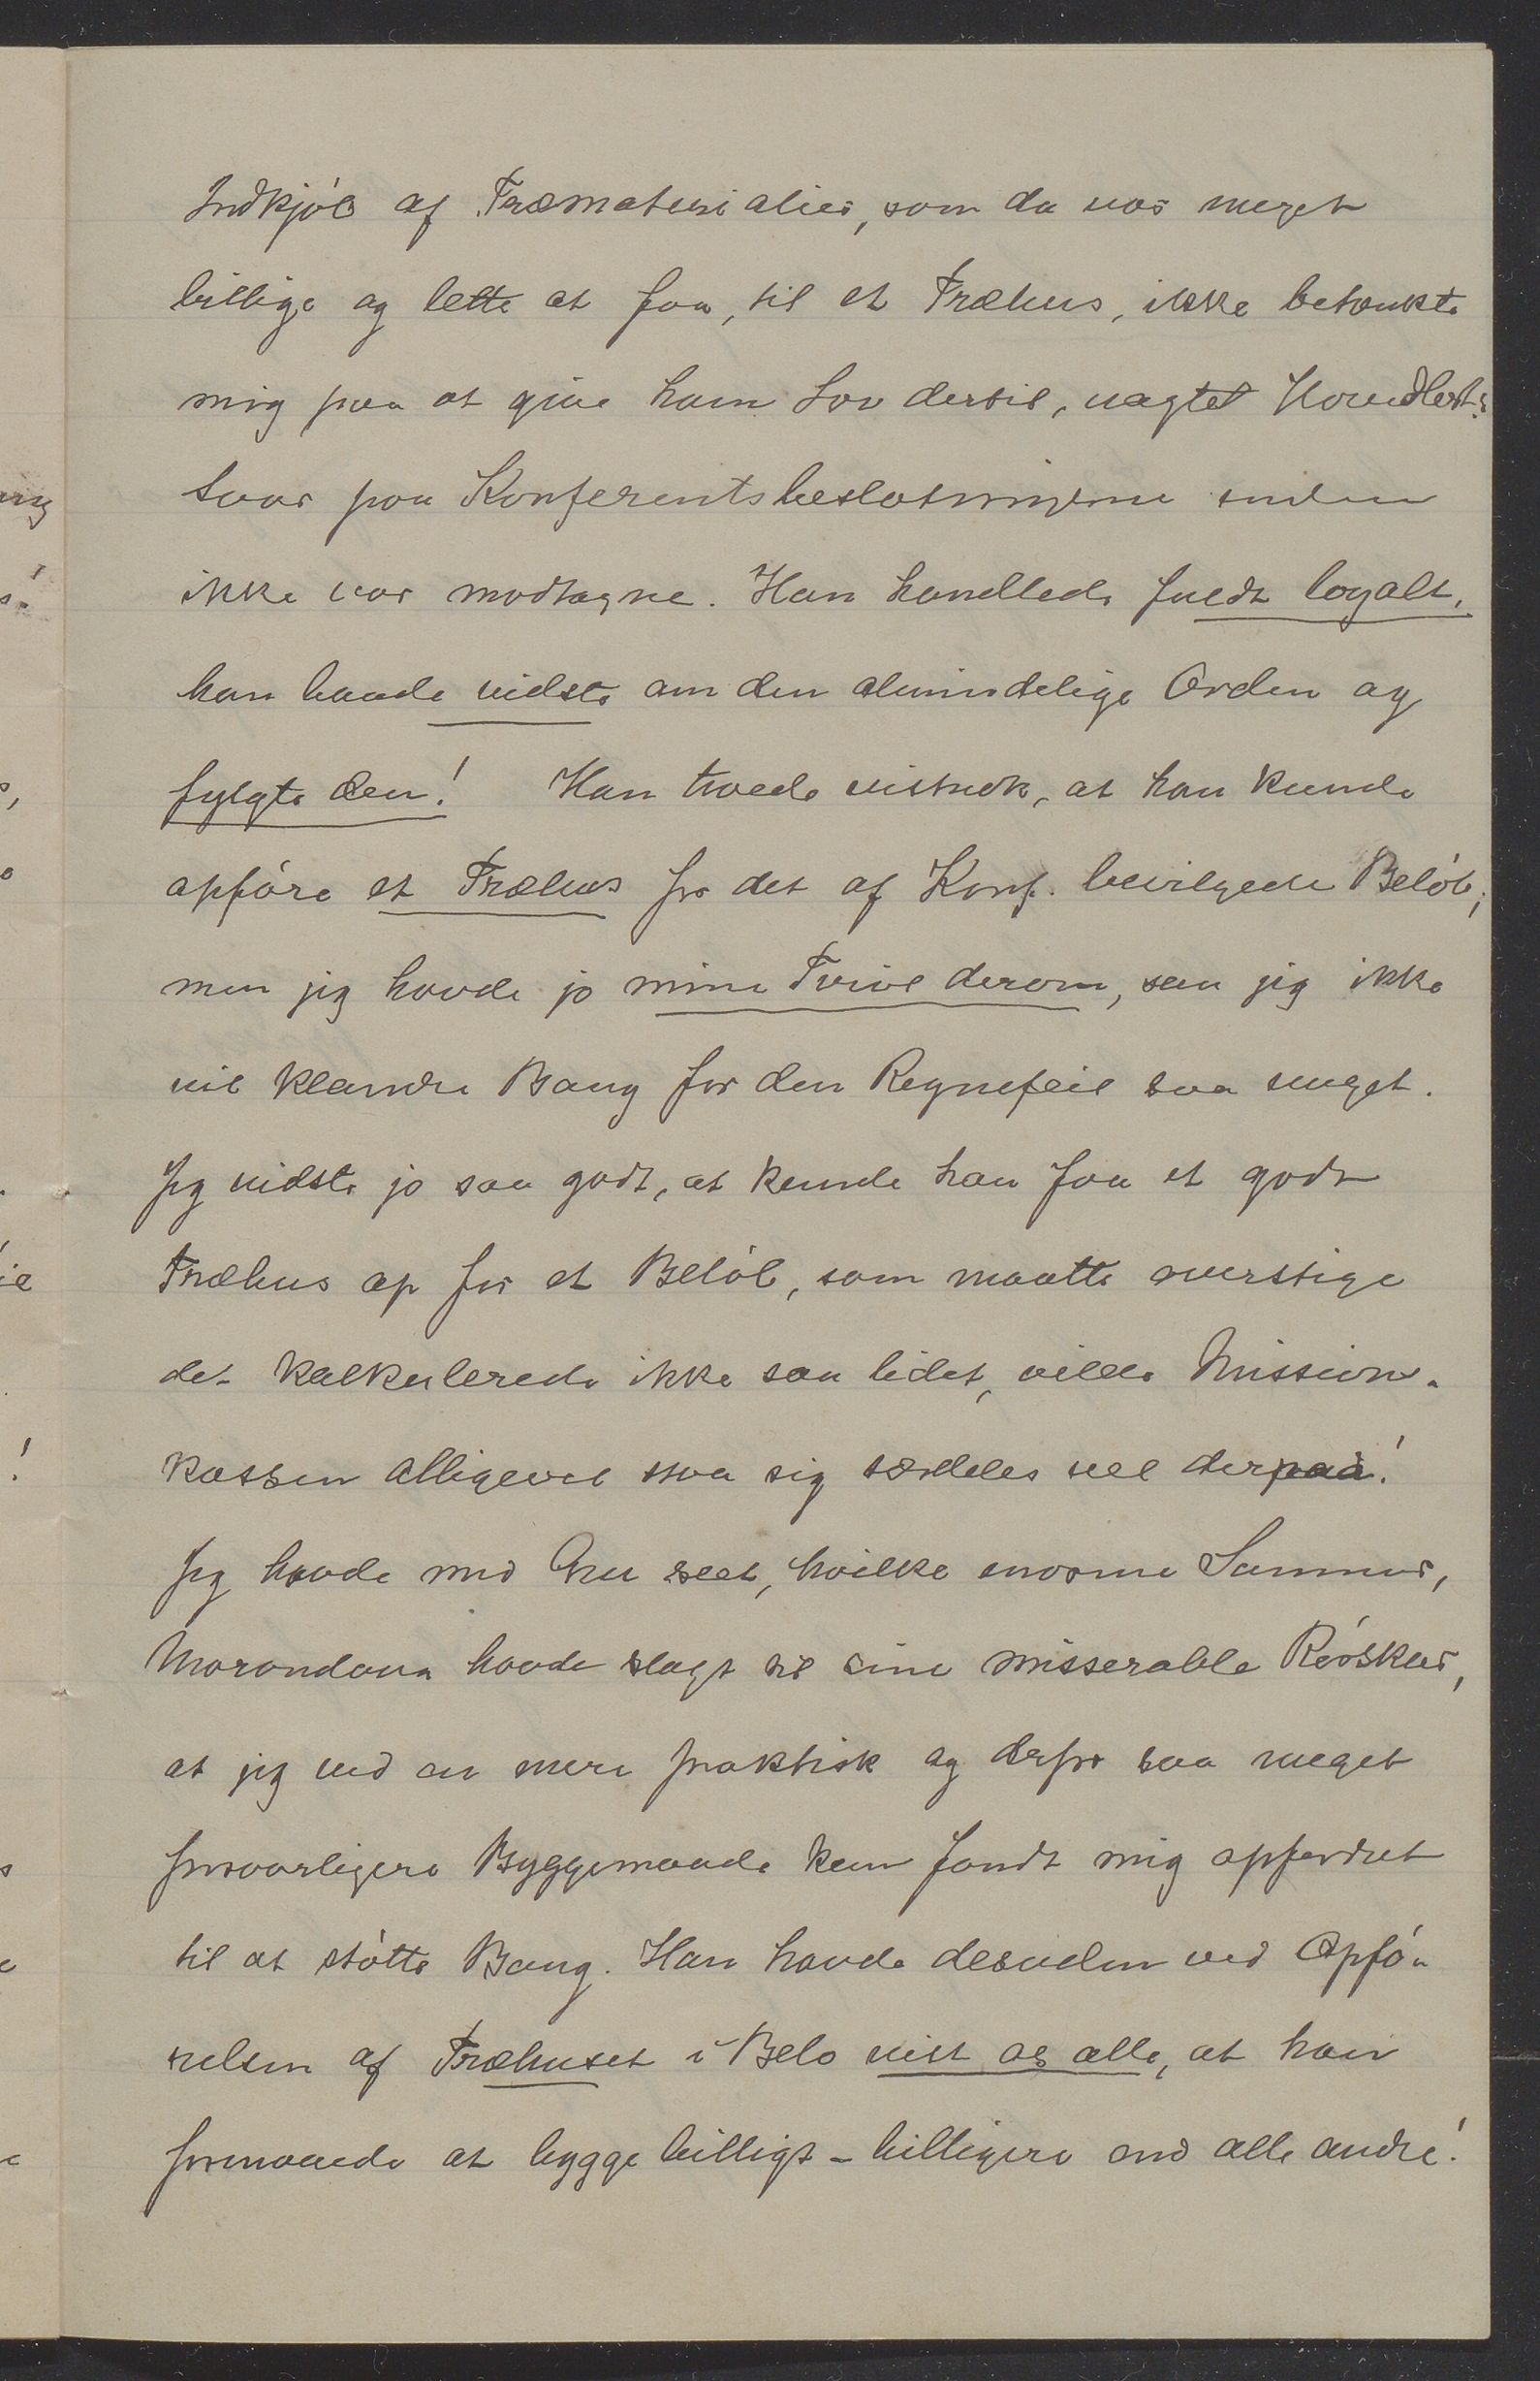 Indkjöb af Træmaterialier, som da var meget
billige og lette at faa, til et Træhus, ikke betænkte
mig paa at give ham Lov dertil, uagtet Hovedbest:s
Svar paa Konferentsbeslutningerne endnu
ikke var modtagne. Han handlede fuldt loyalt,
han havde vidste om den almindelige Orden og
fulgte den! Han troede vistnok, at han kunde
opföre et Træhus for det af Konf. bevilgede Belöb;
men jeg havde jo mine Tvivl derom, saa jeg ikke
vil klandre Bang for den Regnefeil saa meget.
Jeg vidste jo saa godt, at kunde han faa et godt
Træhus op for et Belöb, som maatte overstige
det kalkulerede ikke saa lidet, vilde Missions-
kassen alligevel staa sig særdeles vel derpaa!
Jeg havde med Gru seet, hvilke enorme Summer,
Morondava havde slugt til sine misserable Rösker,
at jeg ved en mere praktisk og derfor saa meget
forsvarligere Byggemaade kun fandt mig opfordret
til at stötte Bang. Han havde desuden ved Opfö-
relsen af Træhuset i Belo vist os alle, at han
formaaede at bygge billigt - billigere end alle andre!